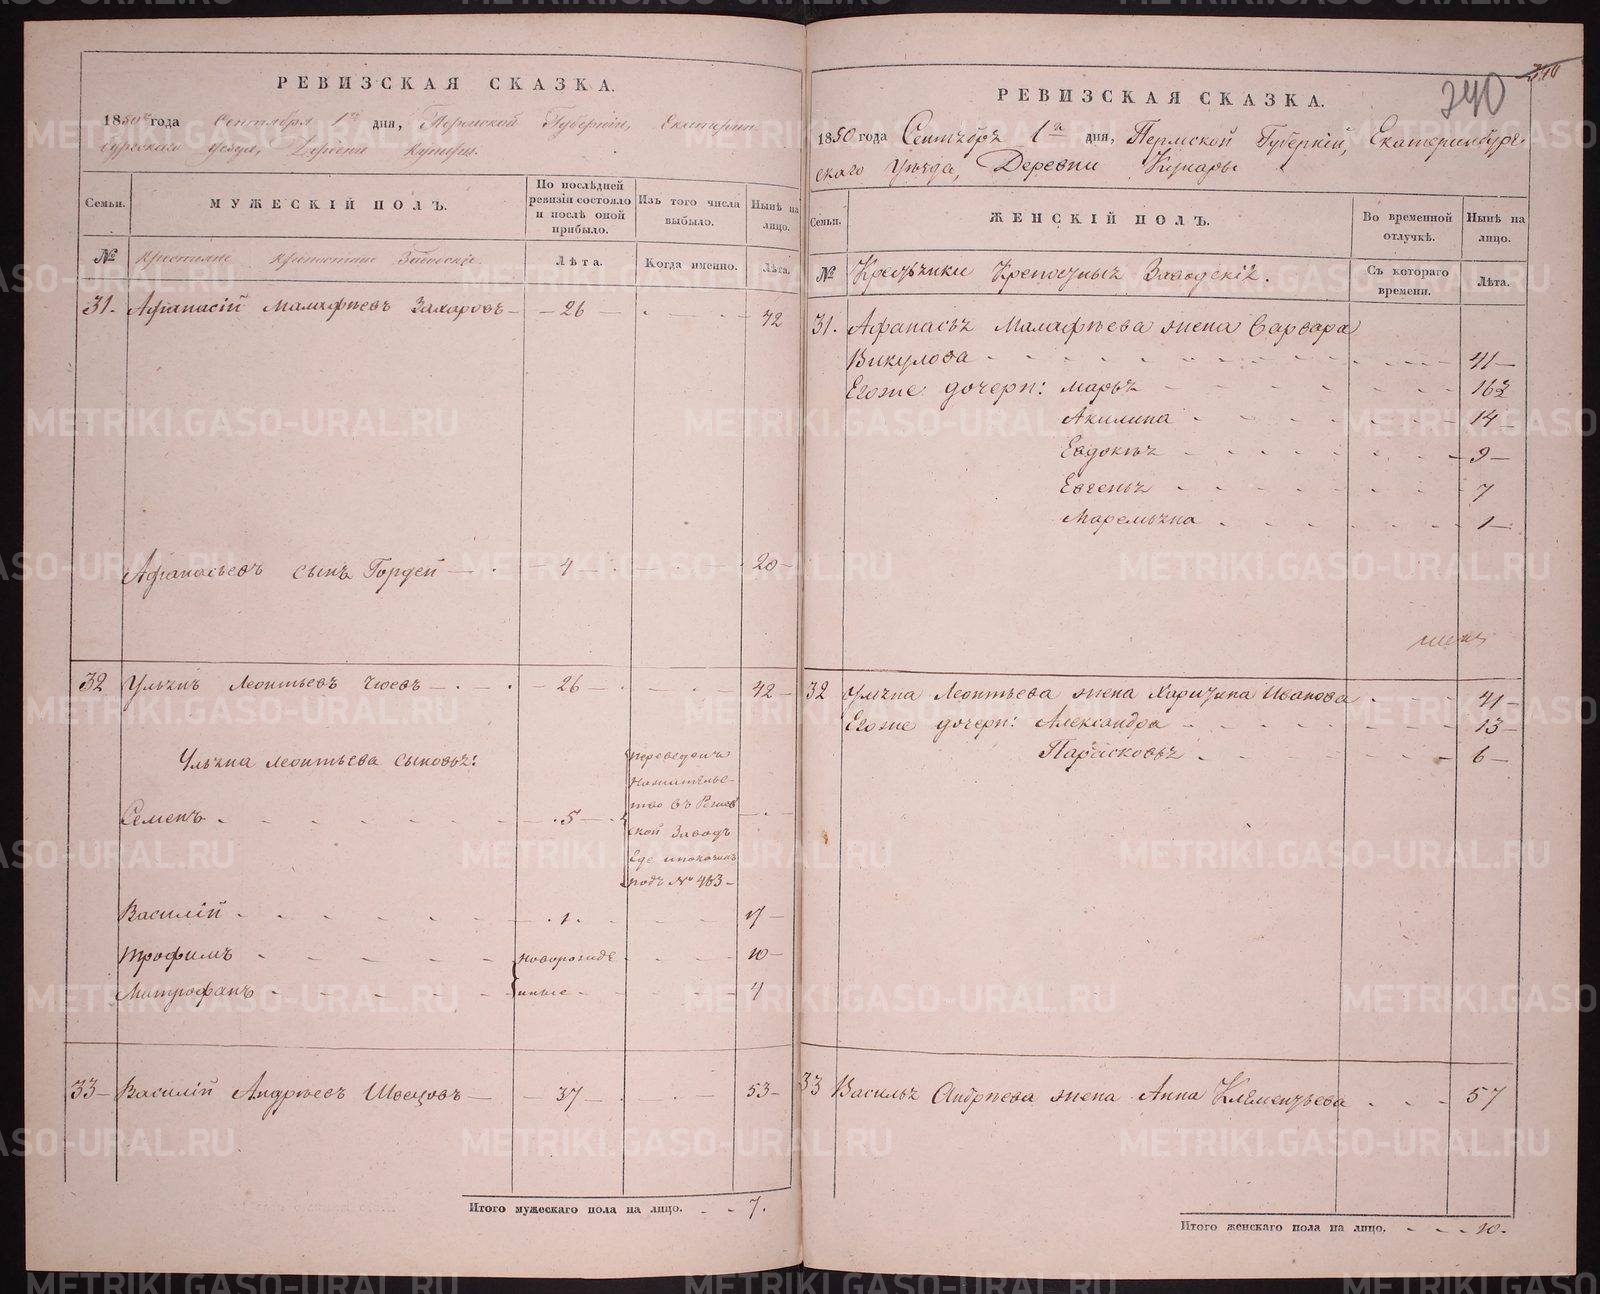 РЕВИЗСКАЯ СКАЗКА.
1850го года Сентября 1го дня, Пермской Губернии, Екатерин
бургскаго уезда, Деревни Кунары.
Семьи.
МУЖЕСКІЙ ПОЛЪ.
По послѣдней ревизіи состояло и послѣ оной прибыло.
Изъ того числа выбыло.
Нынѣ на лицо.
№
Крестьяне крепостные Заводскіе.
Лѣта.
Когда именно.
Лѣта.
31. Афанасій Малафѣевъ Захаровъ 26 42
Афанасьевъ сынъ Гордей 4 20
32 Ульянъ Леонтьевъ Чюевъ 26 42
Ульяна Леонтьева сыновья:
Семенъ 5
переведенъ
на жительс-
тво въ Режев
ской Заводъ
где и показанъ
подъ № 463
Василій 1 17
Трофимъ новорожде 10
Митрофанъ нные 4
33 Василій Андрѣевъ Швецовъ 37 53
Итого мужескаго пола на лицо. 7.
240
РЕВИЗСКАЯ СКАЗКА.
1850 года Сентября 1го дня, Пермской Губерніи, Екатеринбург-
скаго уѣзда, Деревни Кунары
Семьи.
ЖЕНСКІЙ ПОЛЪ.
Во временной отлучкѣ.
Нынѣ на лицо.
№
Крестьянки Крепостныя Заводскія.
Съ котораго времени.
Лѣта.
31. Афанасья Малафѣева жена Варвара
Викулова 41
Его же дочери: Марья 16½
Акилина 14
Евдокья 9
Евгенья 7
Маремьяна 1
32 Ульяна Леонтьева жена Харитина Иванова 41
Его же дочери: Александра 13
Парасковья 6
33 Василья Андрѣева жена Анна Клементьева 57
Итого женскаго пола на лицо. 10.
METRIKI.GASO-URAL.RU